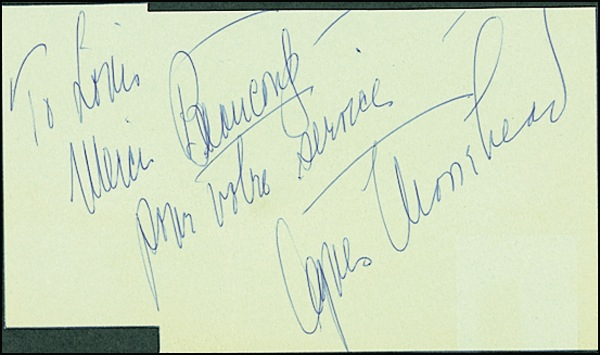 To Louis
Merci Beaucoup
pour votre Service
Agnes Moorehead